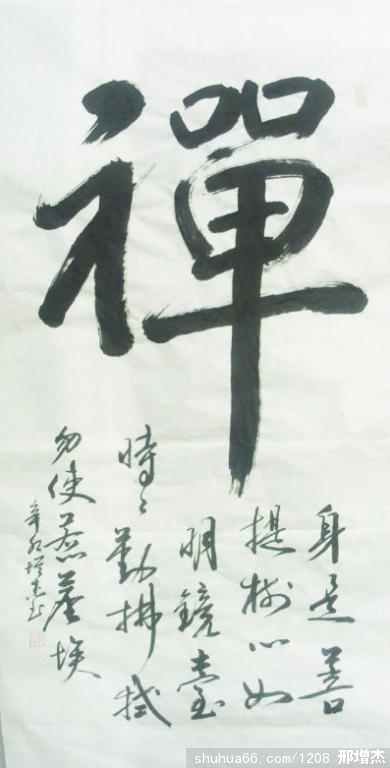 禪
身是菩
提树心如
明鏡臺
時々勤拂拭
勿使惹塵埃
辛卯增杰书
shuhua66.com/1208 邢增杰